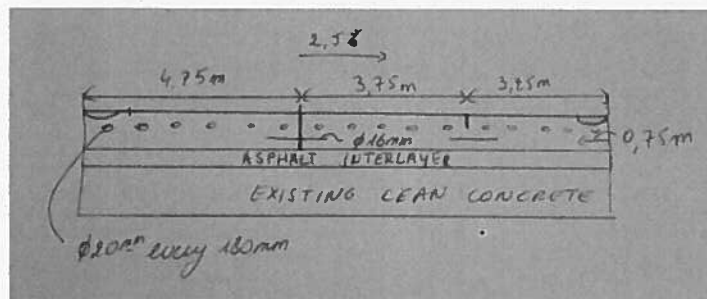 2,5%
4,75m 3,75m 3,25m
φ16mm
0,75m
ASPHALT INTERLAYER
EXISTING LEAN CONCRETE
φ20mm every 180mm